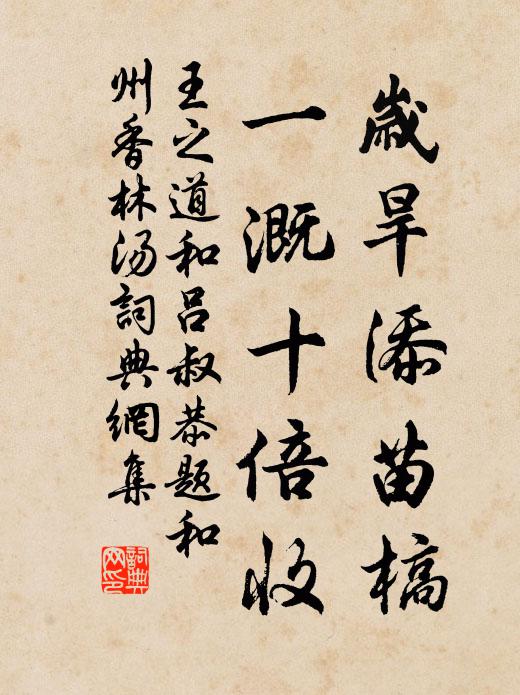 歲旱添苗槁
一溉十倍收
王之道和呂叔恭題和
州香林湯詞典網集
詞典
网印